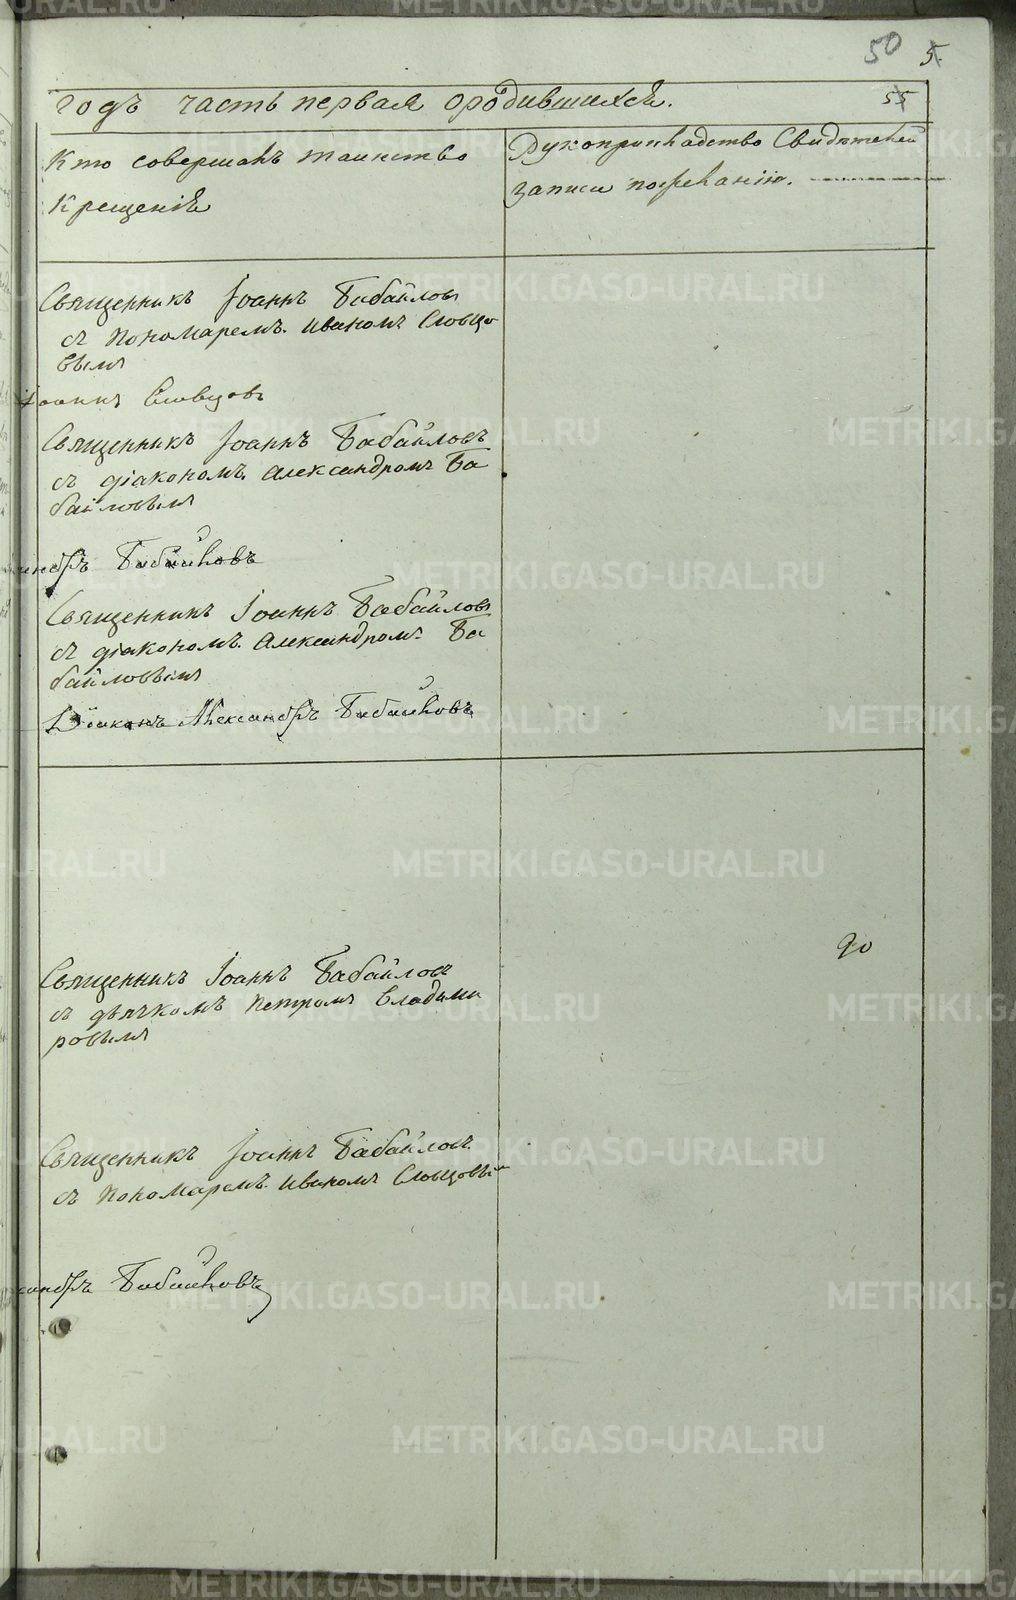 50 5.
55
годъ часть первая ородившихся.
Кто совершалъ таинство
Крещенія
Рукоприкладство Свидѣтелей
записи пожеланію.
Священникъ Іоаннъ Бабайловъ
съ пономаремъ Иваномъ Словцо
вымъ
Іоаннъ Словцовъ
Священникъ Іоаннъ Бабайловъ
съ діакономъ Александромъ Ба
байловымъ
Бабайловъ
Священникъ Іоаннъ Бабайловъ
съ діакономъ Александромъ Ба
байловымъ
Діаконъ Александръ Бабайловъ
90
Священникъ Іоаннъ Бабайловъ
съ дьячкомъ Петромъ Владими
ровымъ
Священникъ Іоаннъ Бабайловъ
съ пономаремъ Иваномъ Словцовы
Бабайловъ
METRIKI.GASO-URAL.RU